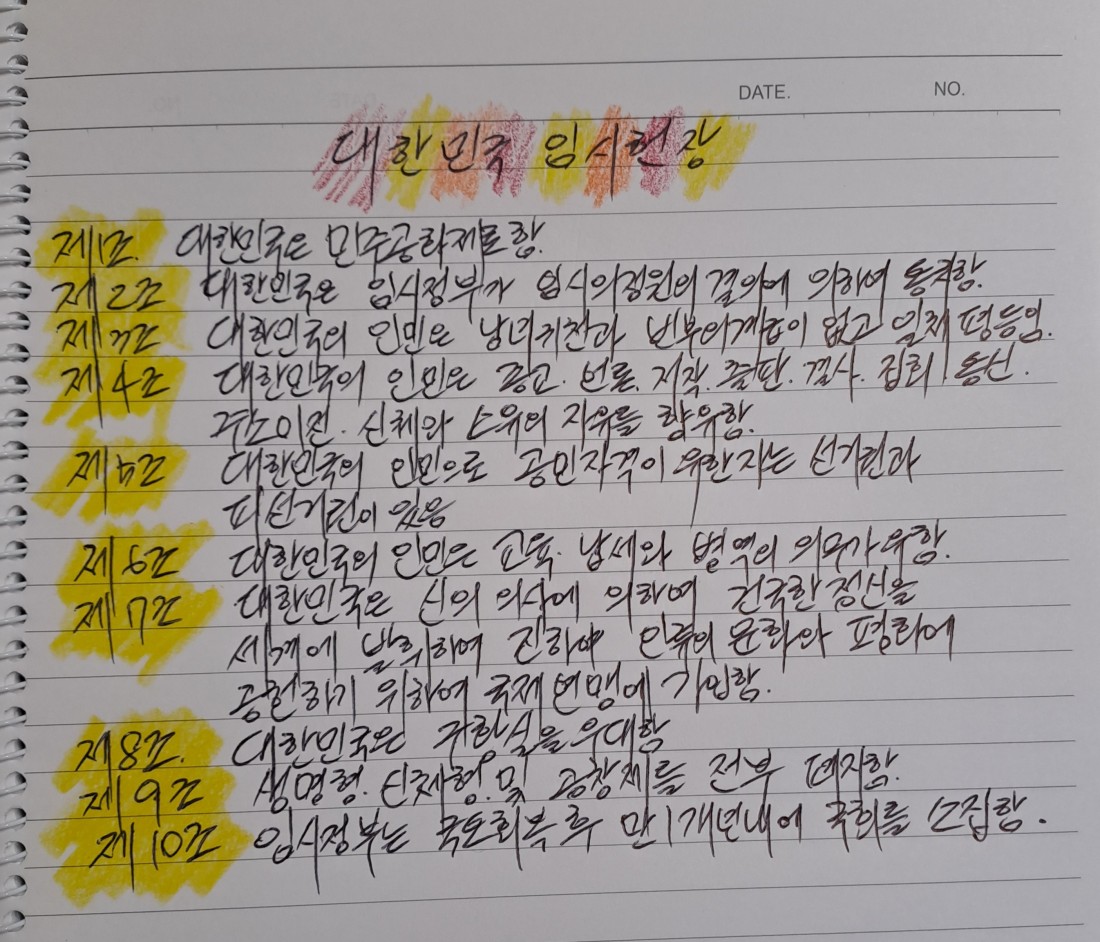 DATE. NO.
대한민국 임시헌장
제1조. 대한민국은 민주공화제로함.
제2조 대한민국은 임시정부가 임시의정원의 결의에 의하여 통치함.
제3조 대한민국의 인민은 남녀귀천과 빈부의계급이 없고 일체 평등임.
제4조 대한민국의 인민은 종교. 언론. 저작. 출판. 결사. 집회. 통신.
주소이전. 신체와 소유의 자유를 향유함.
제5조 대한민국의 인민으로 공민자격이 유한자는 선거권과
피선거권이 있음
제6조 대한민국의 인민은 교육. 납세와 병역의 의무가유함.
제7조 대한민국은 신의 의사에 의하여 건국한정신을
세계에 발휘하며 진하야 인류의 문화와 평화에
공헌하기 위하여 국제연맹에 가입함.
제8조. 대한민국은 구황실을우대함
제9조 생명형. 신체형. 및 공창제를 전부 폐지함.
제10조 임시정부는 국토회복 후 만1개년내에 국회를 소집함.